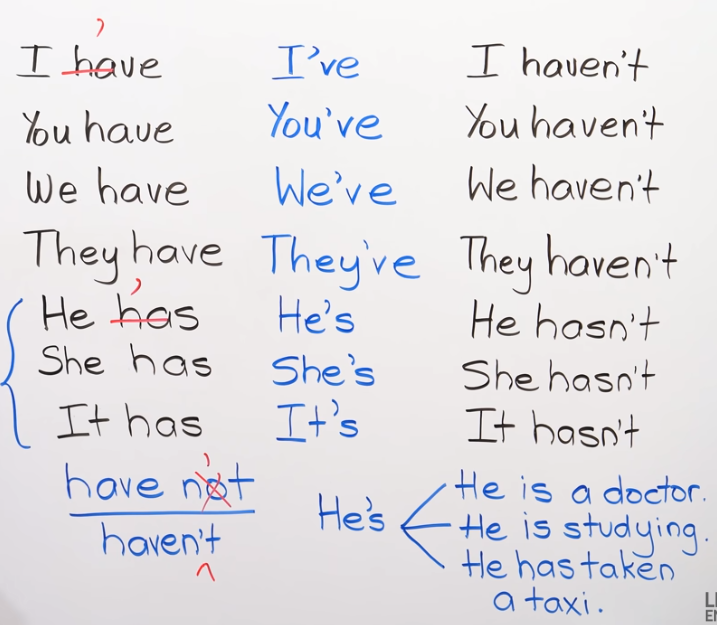 I have I've I haven't
You have You've You haven't
We have We've We haven't
They have They've They haven't
He has He's He hasn't
She has She's She hasn't
It has It's It hasn't
have not
haven't
He's
He is a doctor.
He is studying.
He has taken
a taxi.